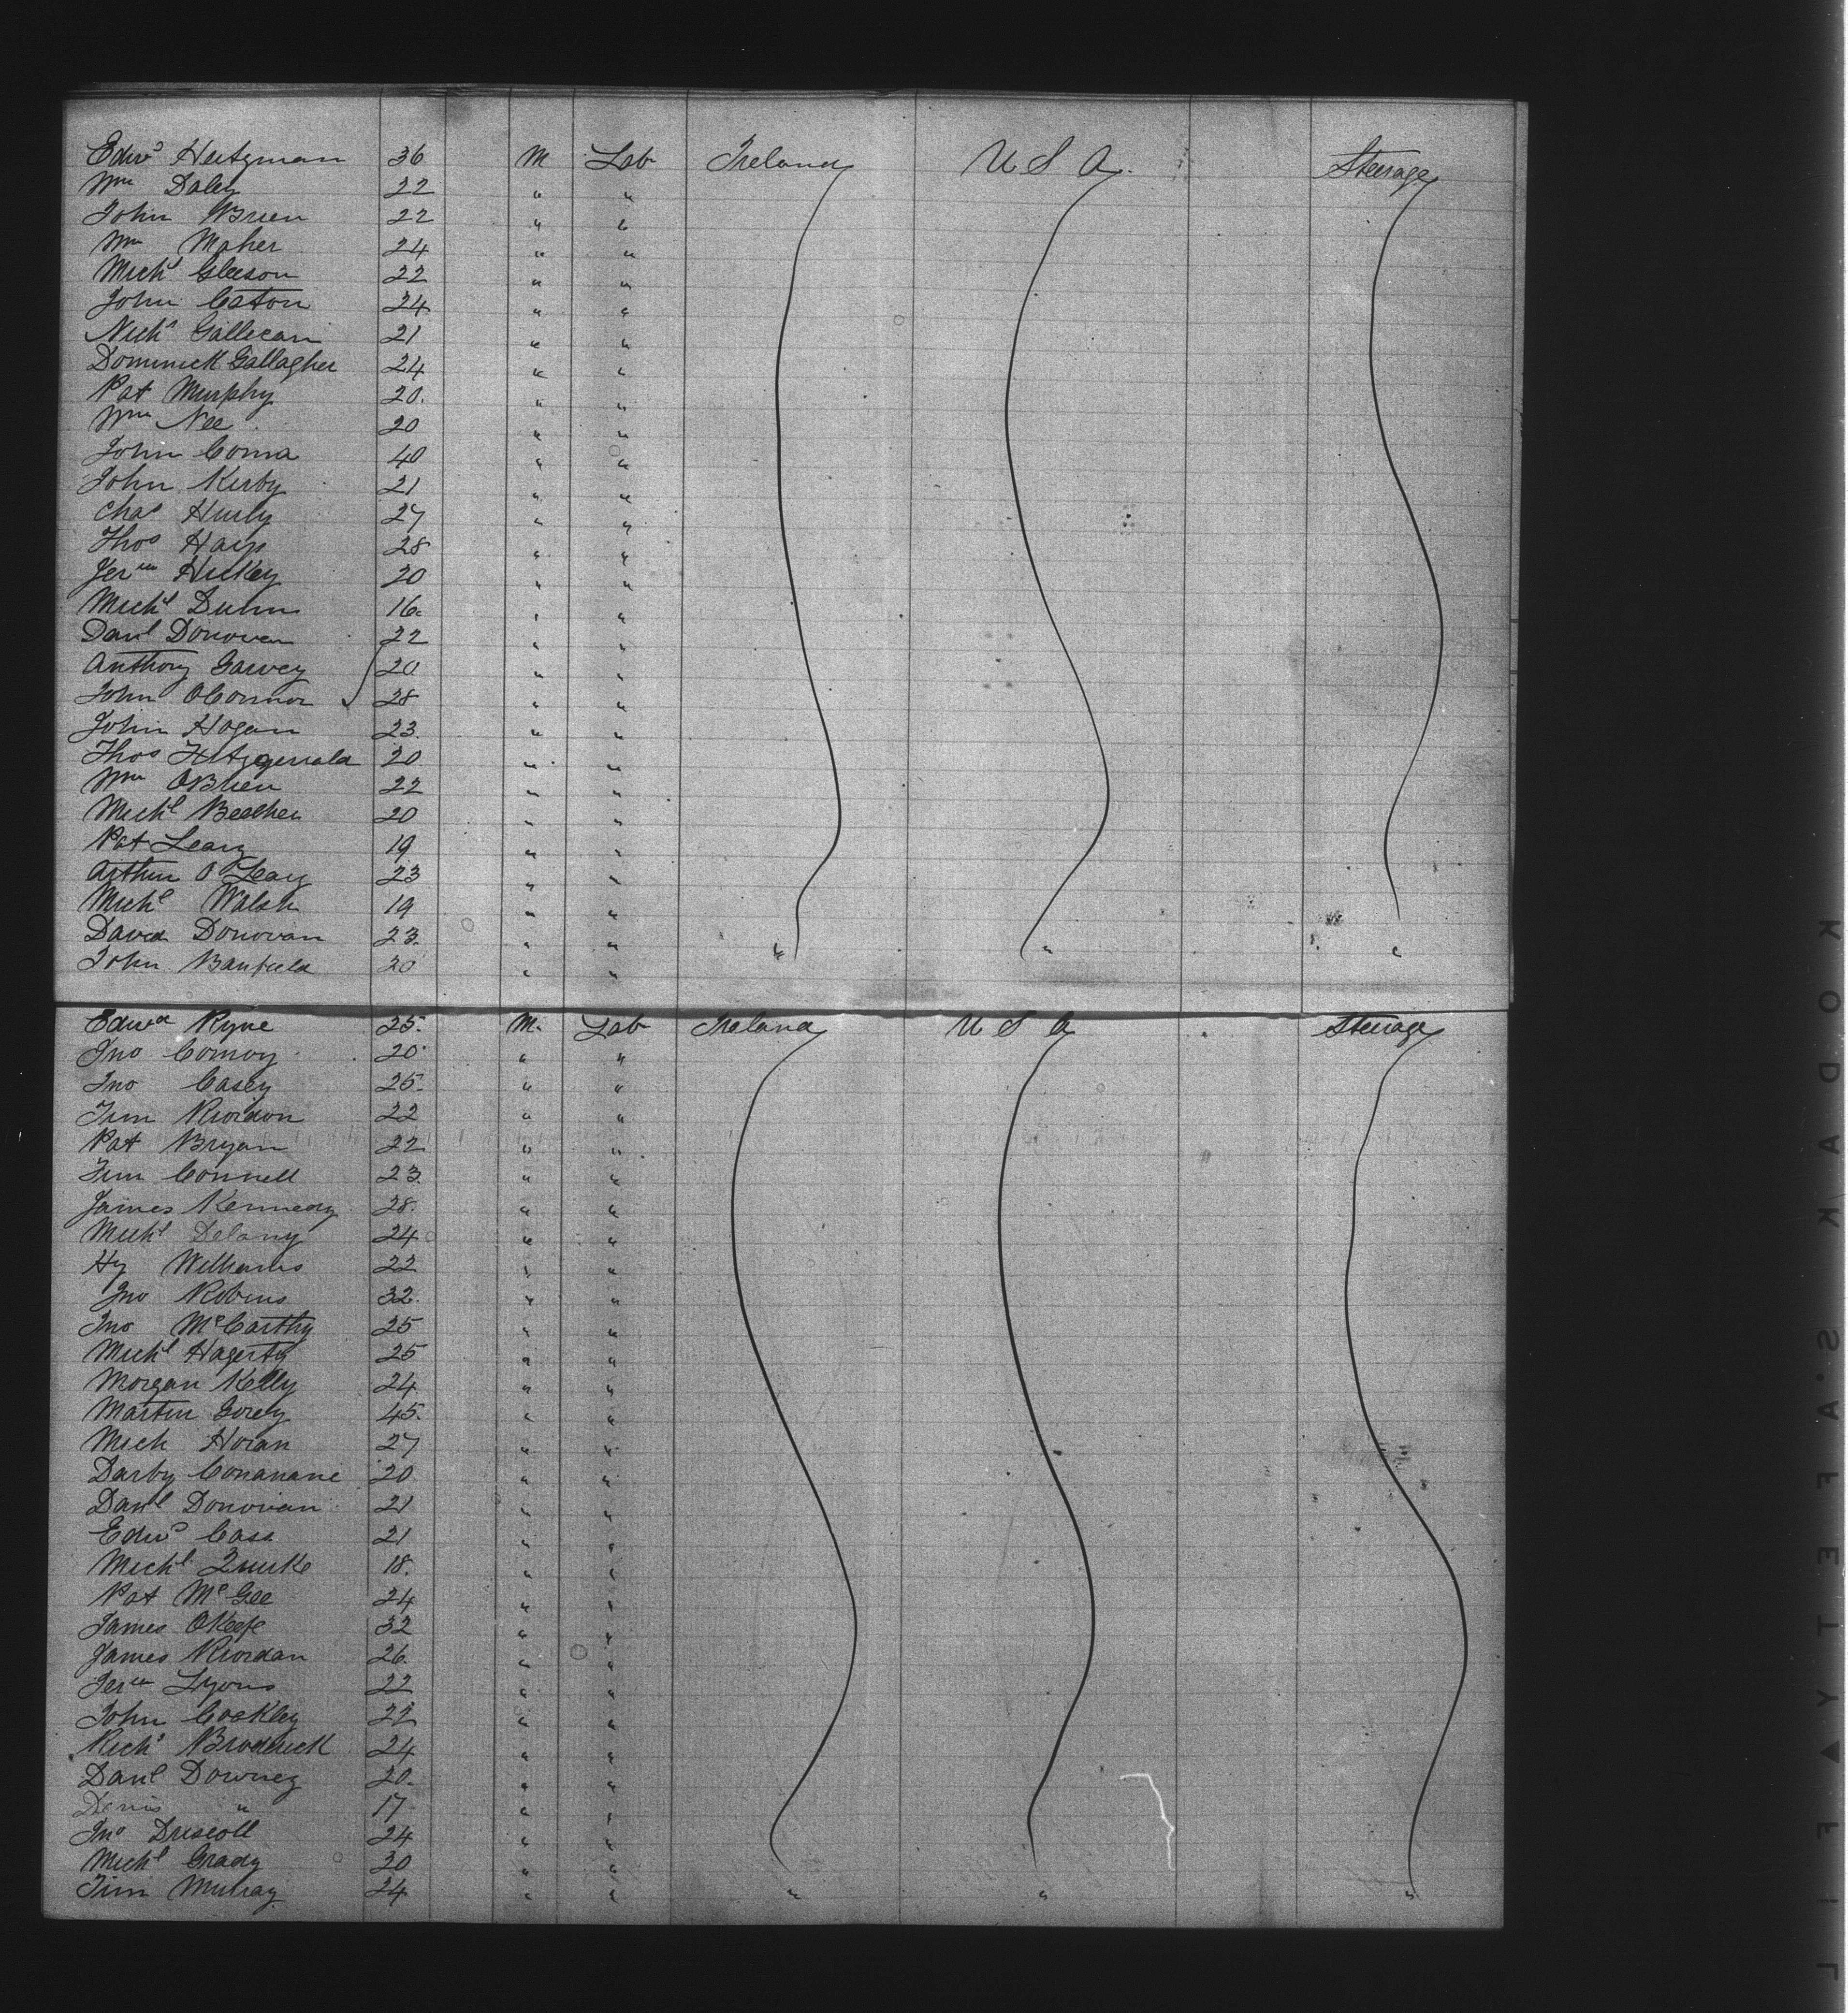 Edwd Heitzman 36 M Lab Ireland U S A. Steerage
Wm Daley 22 " "
John Brien 22 " "
Wm Maher 24 " "
Michl Gleeson 22 " "
John Caton 24 " "
Nichs Gallecan 21 " "
Dominick Gallagher 24 " "
Pat Murphy 20. " "
Wm Nee 20 " "
John Coma 40 " "
John Kirby 21 " "
Chas Hurly 27 " "
Thos Hays 28 " "
Jerm Hickey 20 " "
Michl Dunn 16 " "
Danl Donovan 22 " "
Anthony Garvey 20 " "
John OConnor 28 " "
John Hogan 23. " "
Thos Fitzgerald 20 " "
Wm OBrien 22 " "
Michl Beecher 20 " "
Pat Leary 19 " "
Arthur O'Leary 23 " "
Michl Walsh 19 " "
David Donovan 23. " " " " "
John Banfield 20 " "
Edwd Ryne 25. M. Lab Ireland U S A Steerage
Jno Conroy 20 " "
Jno Casey 25. " "
Tim Riordon 22 " "
Pat Bryan 22 " "
Tim Connell 23. " "
James Kennedy 28. " "
Michl Delany 24 " "
Hy Williams 22 " "
Jno Robins 32. " "
Jno McCarthy 25 " "
Michl Hagerty 25 " "
Morgan Kelly 24 " "
Martin Gorey 45. " "
Mich Horan 27 " "
Darby Conanane 20 " "
Danl Donovan 21 " "
Edwd Cass 21 " "
Michl Quirke 18. " "
Pat McGee 24 " "
James OKeefe 32 " "
James Riordan 26. " "
Jerm Lyons 22 " "
John Coakley 22 " "
Richd Broderick 24 " "
Danl Downey 20. " "
Denis " 17 " "
Jno Driscoll 24 " "
Michl Grady 20 " "
Tim Murray 24 " " " " "
KODAK S.A.FETY ▲ FIL